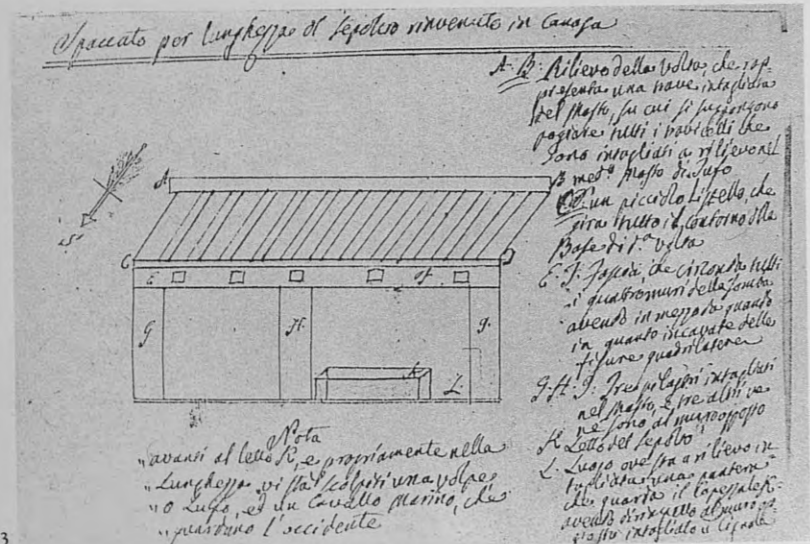 Spaccato per lunghezza del sepolcro rinvenuto in Canosa
A. B. Rilievo della volta, che rap-
presenta una trave intagliata
del masso, su cui si suppongono
poggiare tutti i travicelli che
sono intagliati a rilievo nel
med.º masso di Tufo
C D. un picciolo Listello, che
gira tutto il contorno della
Base di d.ª volta
E. F. Fascia che circonda tutti
i quattro muri della Tomba
avendo in mezzo di quando
in quando incavate delle
figure quadrilatere
G. H. I. Tre pilastri intagliati
nel masso, e tre altri ve
ne sono al muro opposto
K Letto del sepolcro
L. Luogo ove sta a rilievo in-
tagliata una pantera
che guarda il
avendo dirimpetto al muro op-
intagliato il Cignale
A
B
S
C
D
E
F
G
H
I
K
L
Nota
„ avanti al letto K, e propriamente nella
„ Lunghezza vi sta scolpiti una volpe
„ o Lupo, ed un Cavallo marino, che
„ guardano l'occidente
3